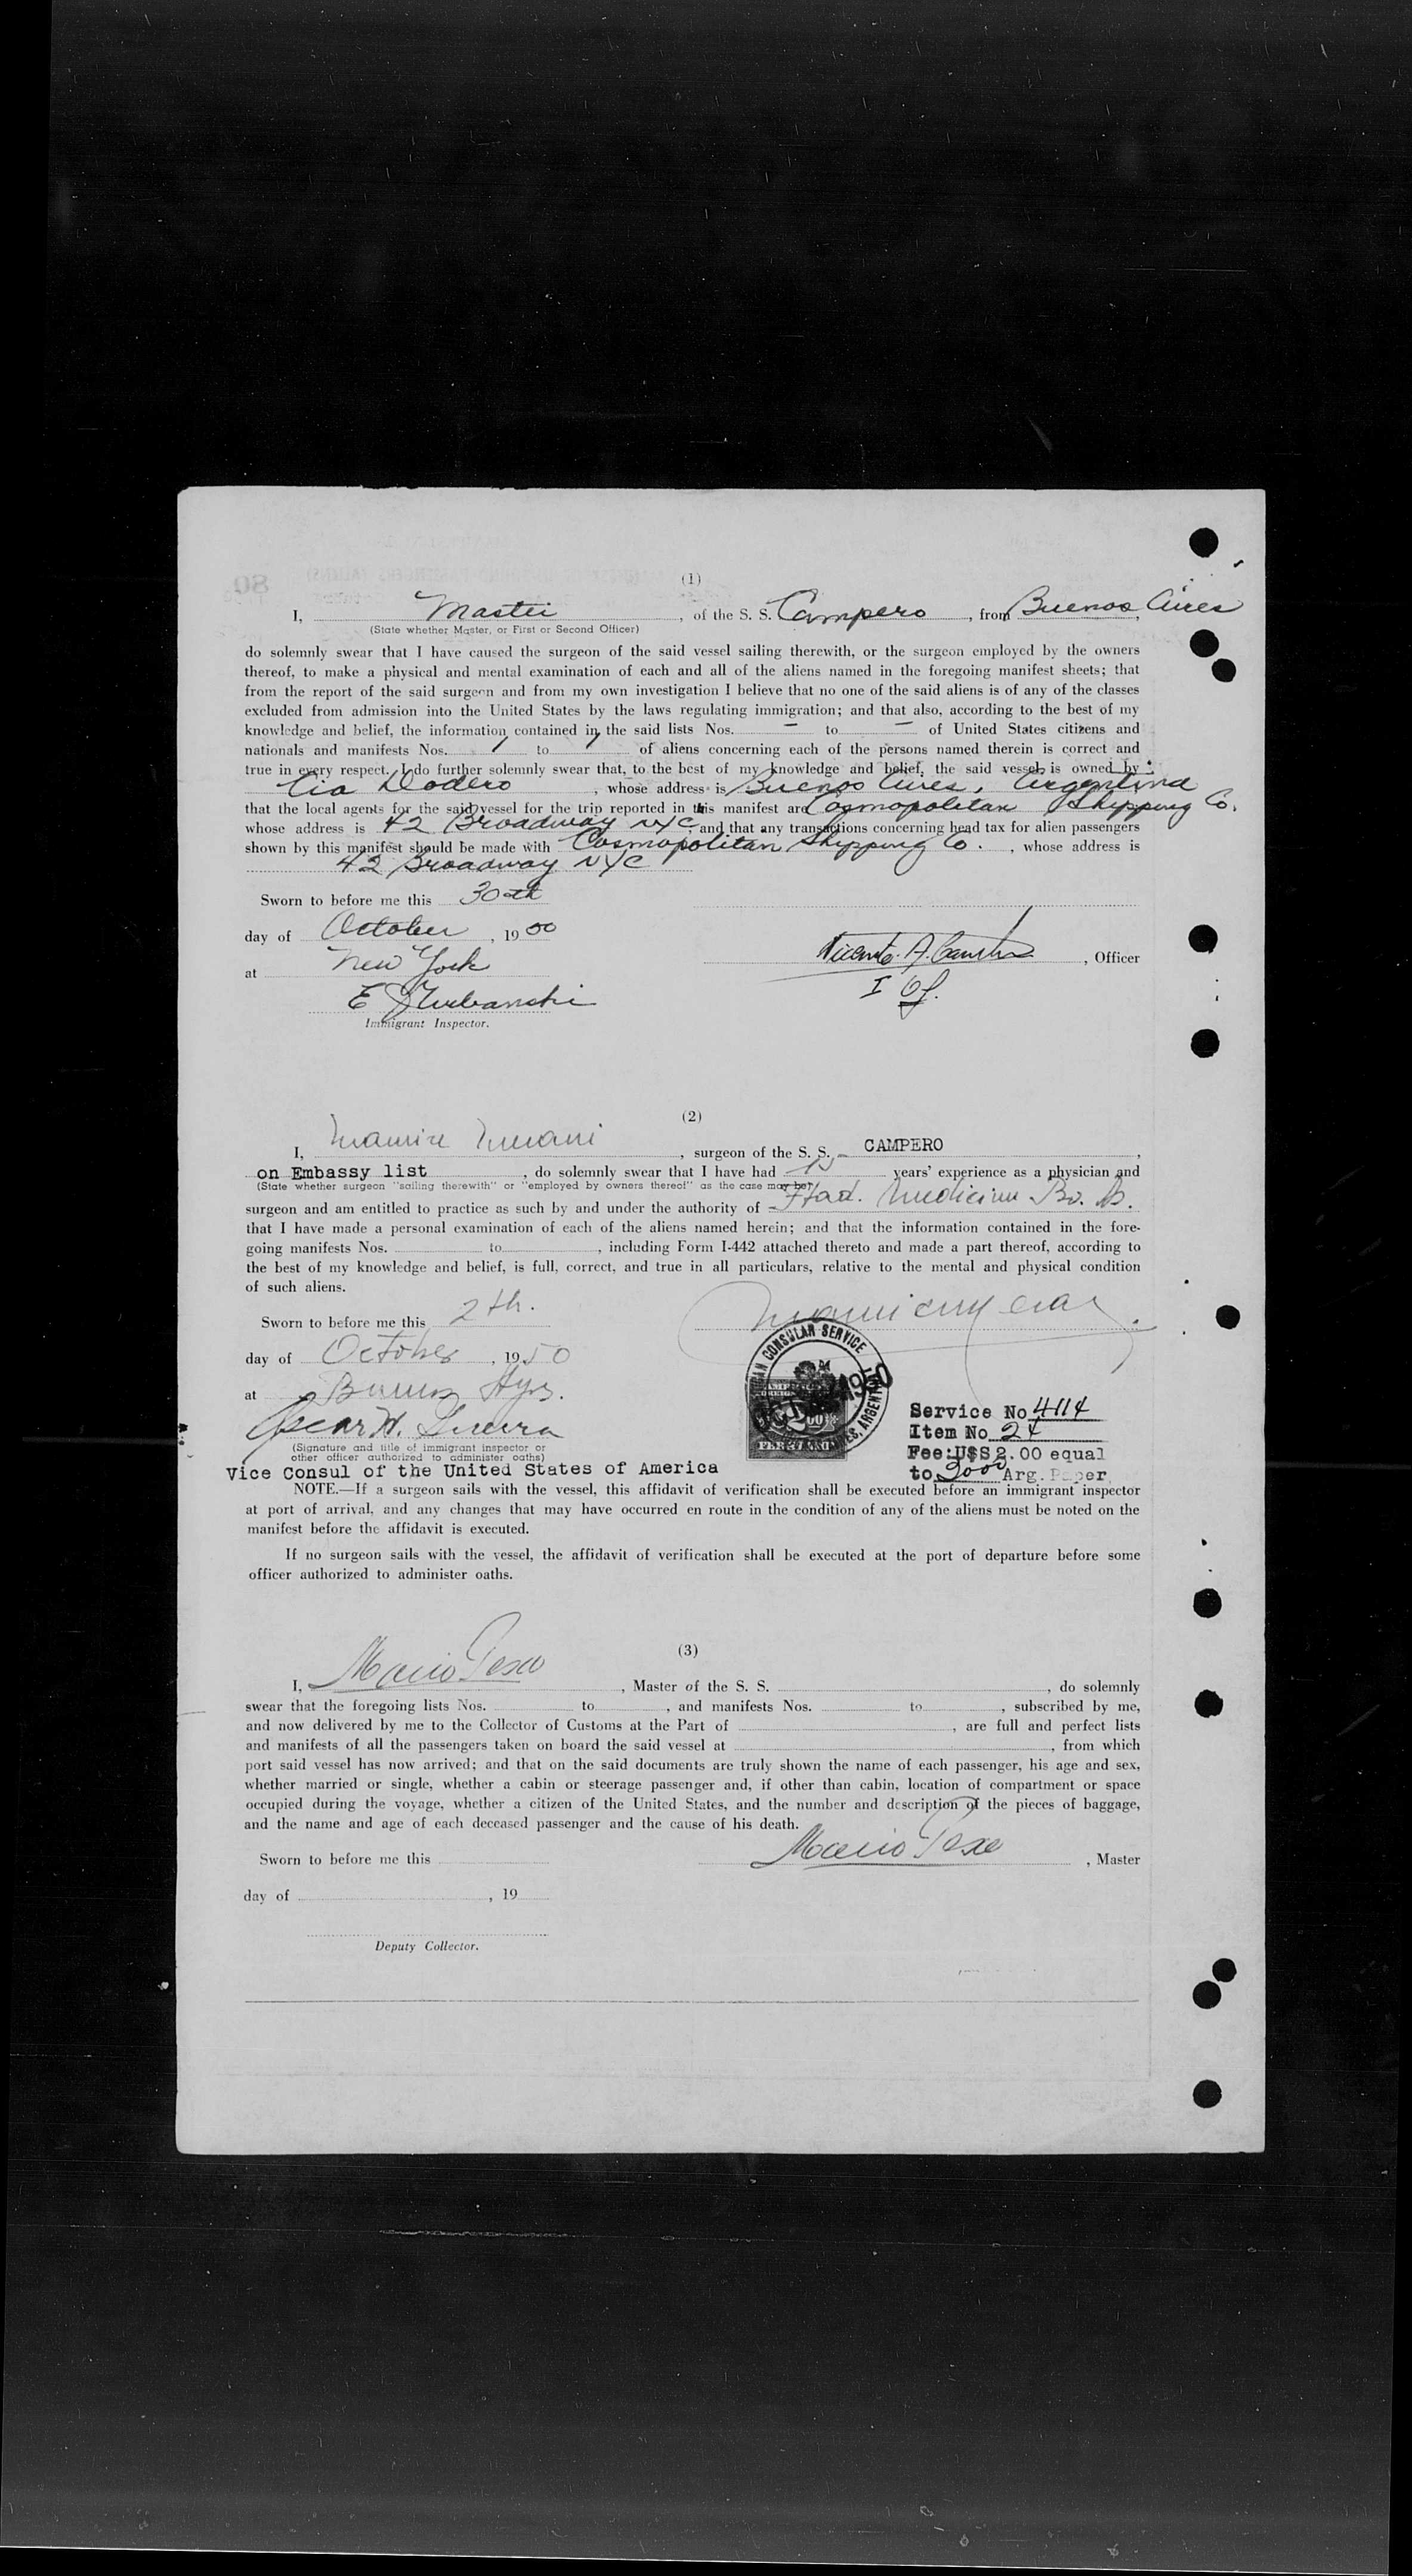 (1)
I, Master, of the S. S. Campero, from Buenos Aires,
(State whether Master, or First or Second Officer)
do solemnly swear that I have caused the surgeon of the said vessel sailing therewith, or the surgeon employed by the owners
thereof, to make a physical and mental examination of each and all of the aliens named in the foregoing manifest sheets; that
from the report of the said surgeon and from my own investigation I believe that no one of the said aliens is of any of the classes
excluded from admission into the United States by the laws regulating immigration; and that also, according to the best of my
knowledge and belief, the information contained in the said lists Nos. – to – of United States citizens and
nationals and manifests Nos. 1 to 1 of aliens concerning each of the persons named therein is correct and
true in every respect. I do further solemnly swear that, to the best of my knowledge and belief, the said vessel is owned by
Cia Dodero, whose address is Buenos Aires, Argentina
that the local agents for the said vessel for the trip reported in this manifest are Cosmopolitan Shipping Co.
whose address is 42 Broadway NYC, and that any transactions concerning head tax for alien passengers
shown by this manifest should be made with Cosmopolitan Shipping Co., whose address is
42 Broadway NYC
Sworn to before me this 30th
day of October, 1950
at New York
Vicente A., Officer
I Of.
E
Immigrant Inspector.
(2)
I, , surgeon of the S. S. CAMPERO,
on Embassy list, do solemnly swear that I have had 15 years' experience as a physician and
(State whether surgeon "sailing therewith" or "employed by owners thereof" as the case may be)
surgeon and am entitled to practice as such by and under the authority of Medicina Bs. As.
that I have made a personal examination of each of the aliens named herein; and that the information contained in the fore-
going manifests Nos. to , including Form I-442 attached thereto and made a part thereof, according to
the best of my knowledge and belief, is full, correct, and true in all particulars, relative to the mental and physical condition
of such aliens.
Sworn to before me this 2th.
day of October, 1950
at Buenos
CONSULAR SERVICE
OCT 1950
Oscar W. Guerra
(Signature and title of immigrant inspector or
other officer authorized to administer oaths)
Vice Consul of the United States of America
Service No 4114
Item No 24
Fee:U$S 2.00 equal
to 3000 Arg. Paper
NOTE.—If a surgeon sails with the vessel, this affidavit of verification shall be executed before an immigrant inspector
at port of arrival, and any changes that may have occurred en route in the condition of any of the aliens must be noted on the
manifest before the affidavit is executed.
If no surgeon sails with the vessel, the affidavit of verification shall be executed at the port of departure before some
officer authorized to administer oaths.
(3)
I, Mario, Master of the S. S. , do solemnly
swear that the foregoing lists Nos. to , and manifests Nos. to , subscribed by me,
and now delivered by me to the Collector of Customs at the Part of , are full and perfect lists
and manifests of all the passengers taken on board the said vessel at , from which
port said vessel has now arrived; and that on the said documents are truly shown the name of each passenger, his age and sex,
whether married or single, whether a cabin or steerage passenger and, if other than cabin, location of compartment or space
occupied during the voyage, whether a citizen of the United States, and the number and description of the pieces of baggage,
and the name and age of each deceased passenger and the cause of his death.
Sworn to before me this
Mario, Master
day of , 19
Deputy Collector.